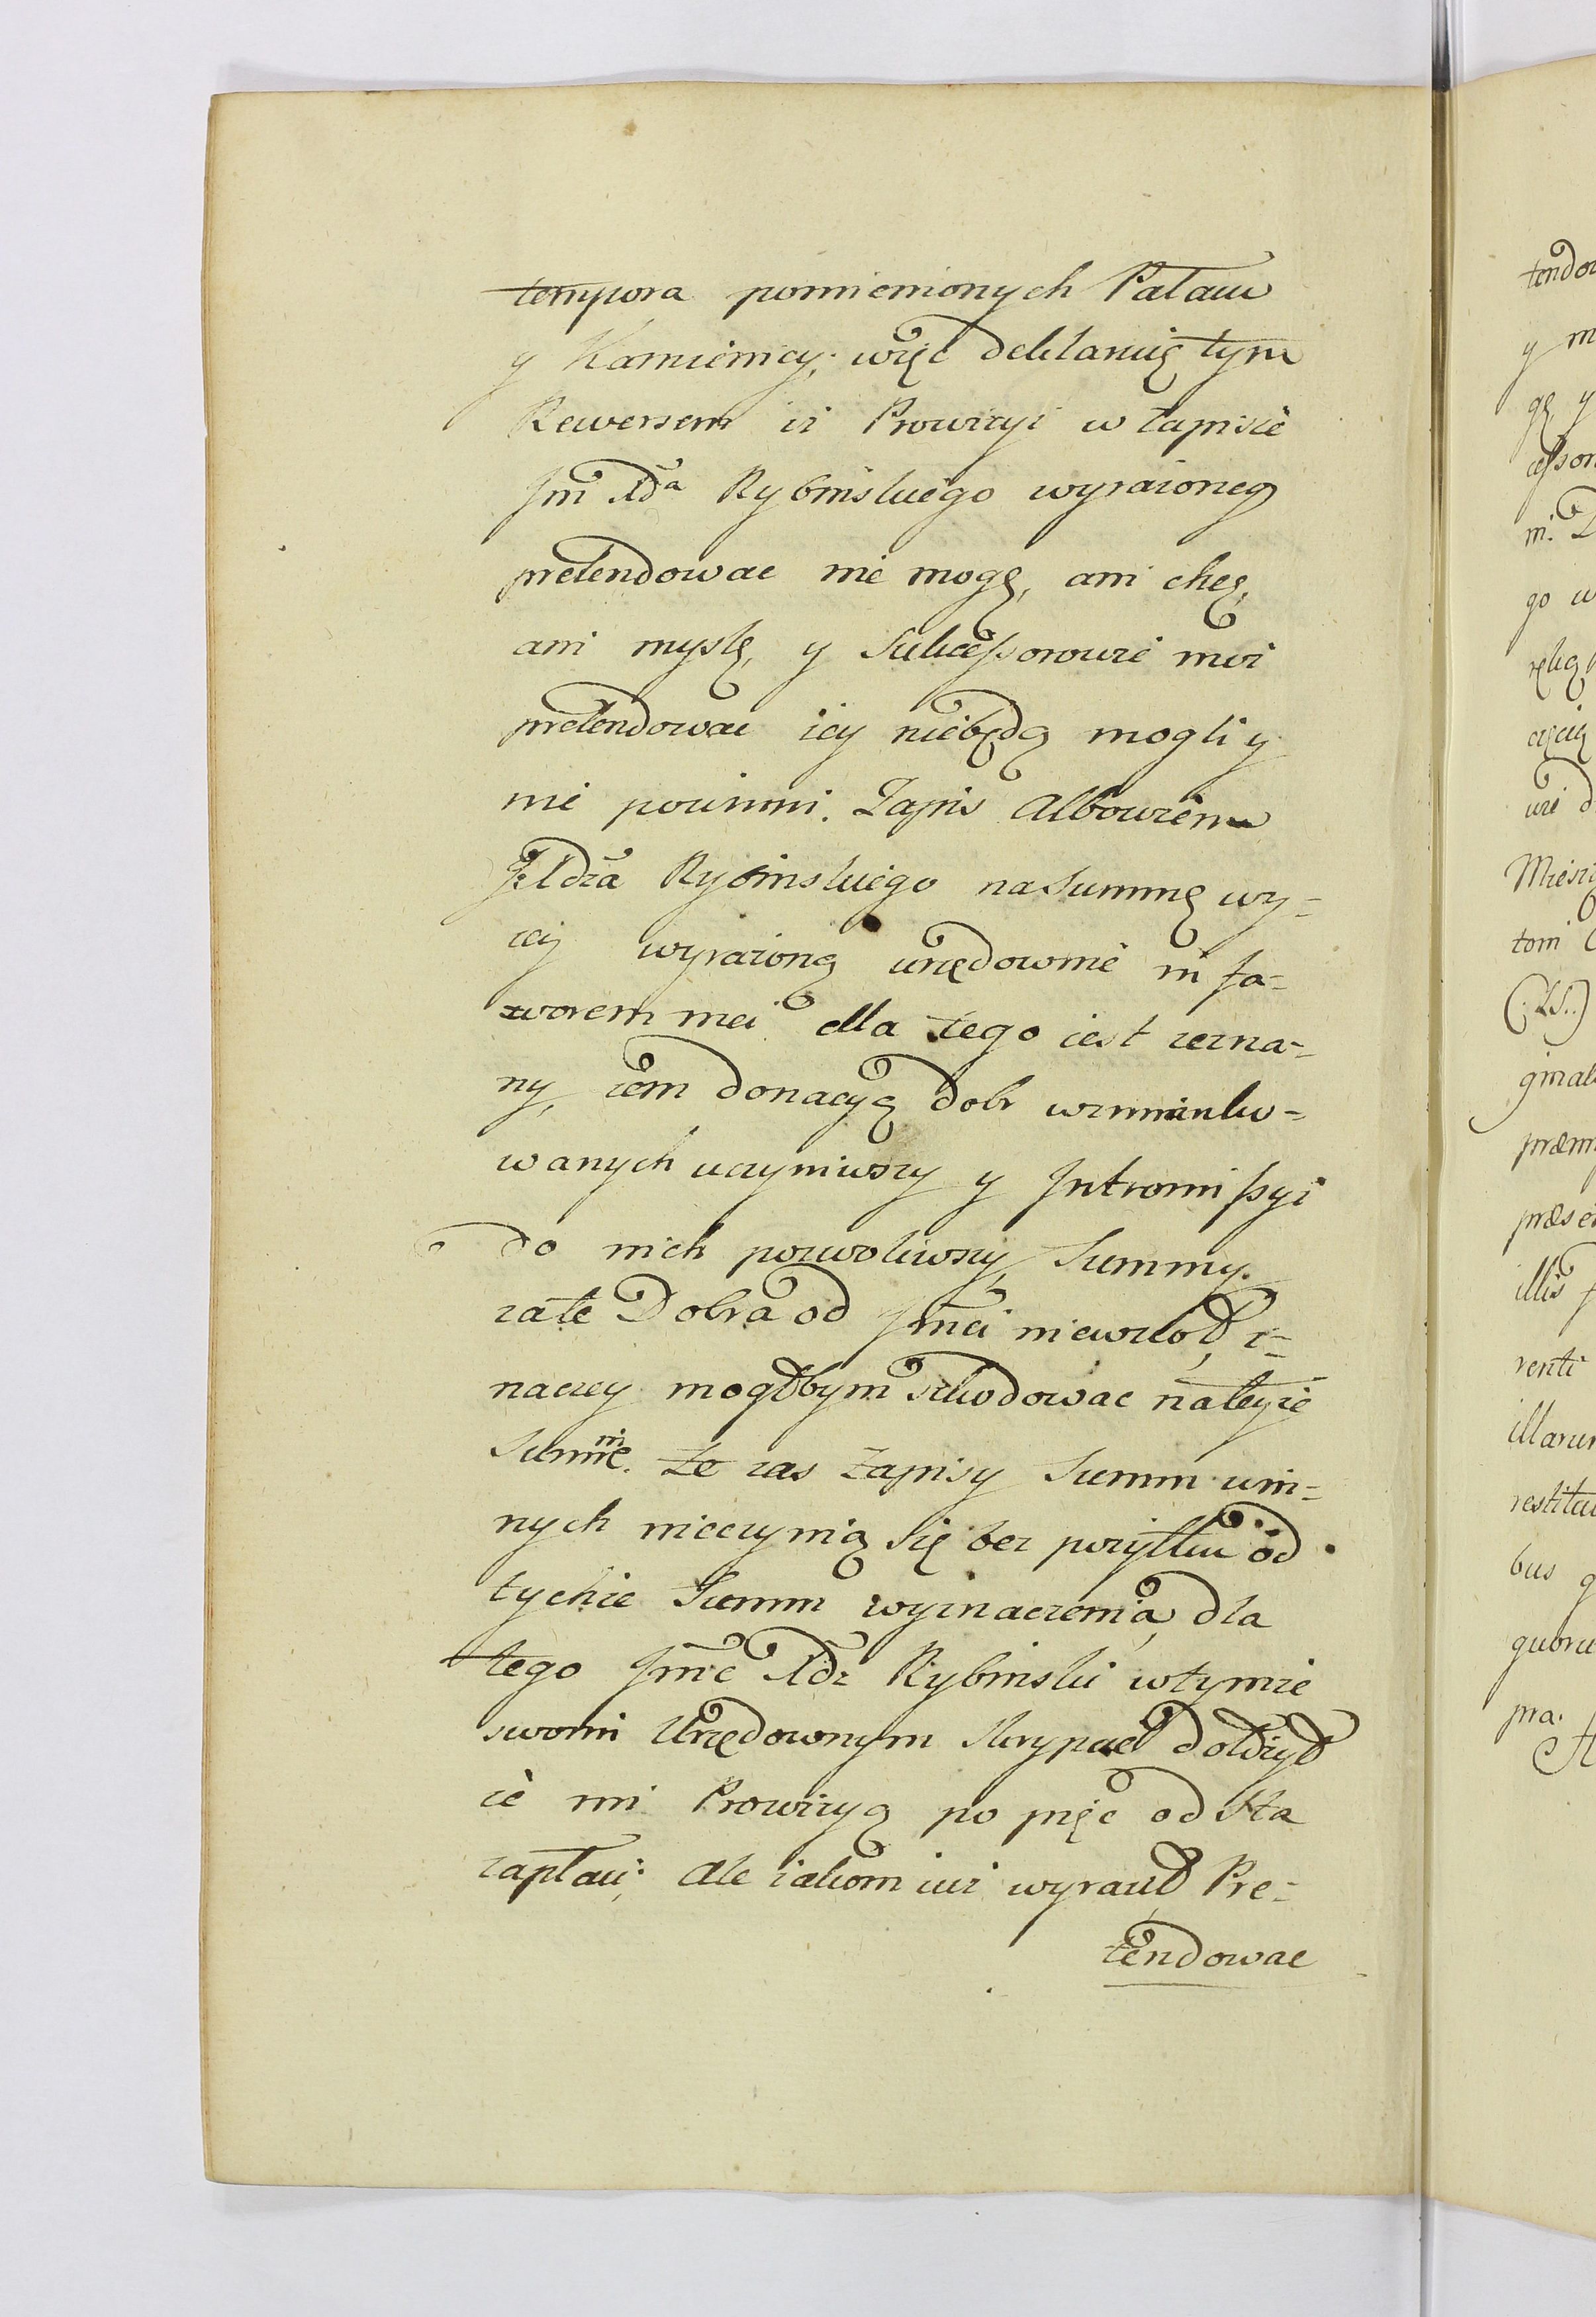 tempora pomienionych Pałacu
y Kamienicy; więc deklaruię tym
Rewersem iż Prowizyi w Zapisie
Jm Xdza Rybinskiego wyrażoney
pretendowac nie mogę, ani chcę,
ani myslę, y Sukcessorowie moi
pretendowac iey niebędą mogli y
nie powinni. Zapis Albowiem
JXdza Rybinskiego na Summę wy=
żey wyrażoną urzędownie in fa=
worem mei dla tego iest zezna=
ny, żem donacyą dobr wzmianko=
wanych uczyniwszy y Intromissyi
do nich pozwoliwszy, Summy
za te Dobra od Jmci niewziął, i=
naczey mogłbym szkodowac na teyże
Summie. Że zas Zapisy Summ win=
nych nieczynią się bez pożytku od
tychże Summ wyznaczenia, dla
tego Jmc Xdz Rybinski w tymże
swoim Urzędownym skrypcie dołożył
że mi Prowizyą po pięc od Sta
zapłaci; Ale iakom iuż wyraził, Pre=
tendowac
tendow
y m
gę, y
cesson
m. D
go w
ręką
częcią
wie d
Miesią
tom
(:LS.:)
ginal
præm
præse
illis
renti
illarum
restitu
bus q
quoru
pra.